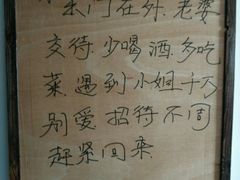 门在外.老婆
交待.少喝酒.多吃
菜.遇到小姐千万
别爱.招待不周
赶紧回来